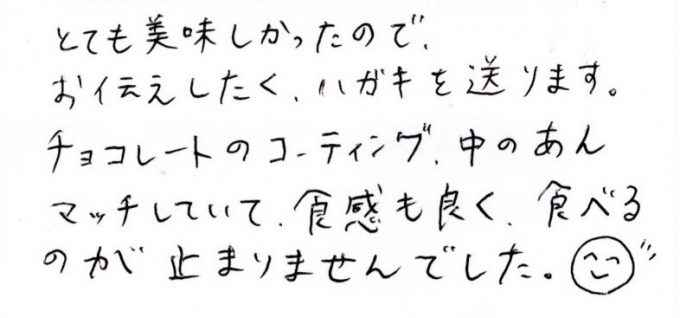 とても美味しかったので、
お伝えしたく、ハガキを送ります。
チョコレートのコーティング、中のあん
マッチしていて、食感も良く、食べる
のが止まりませんでした。